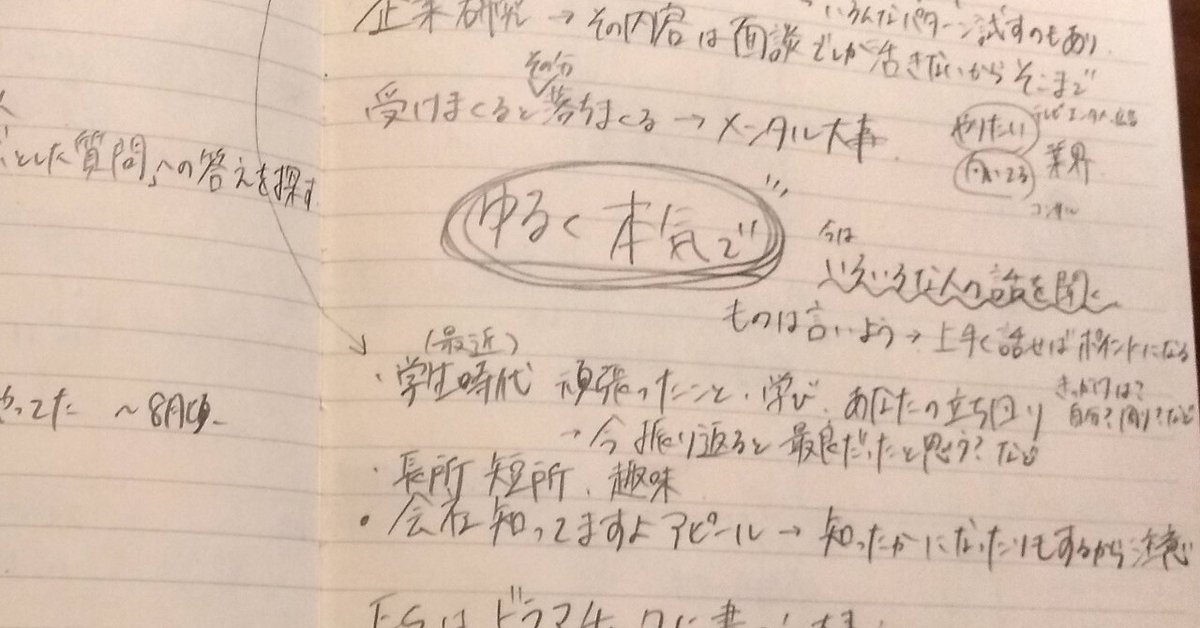 いろんなパターン試すのもあり
企業研究 → その内容は面談でしか活きないからそこまで
その分
受けまくると落ちまくる → メンタル大事
やりたい
向いてる
業界
コンサル
とした質問」への答えを探す
ゆるく本気で
今は
いろいろな人の話を聞く
ものは言いよう → 上手く話せばポイントになる
(最近)
・学生時代 頑張ったこと・学び、あなたの立ち回り
きっかけは?
自分?周り?など
→ 今振り返ると最良だったと思う?など
~8月中
・長所 短所、趣味
・会社知ってますよアピール → 知ったかになったりもするから注意
ESはドラマチックに書